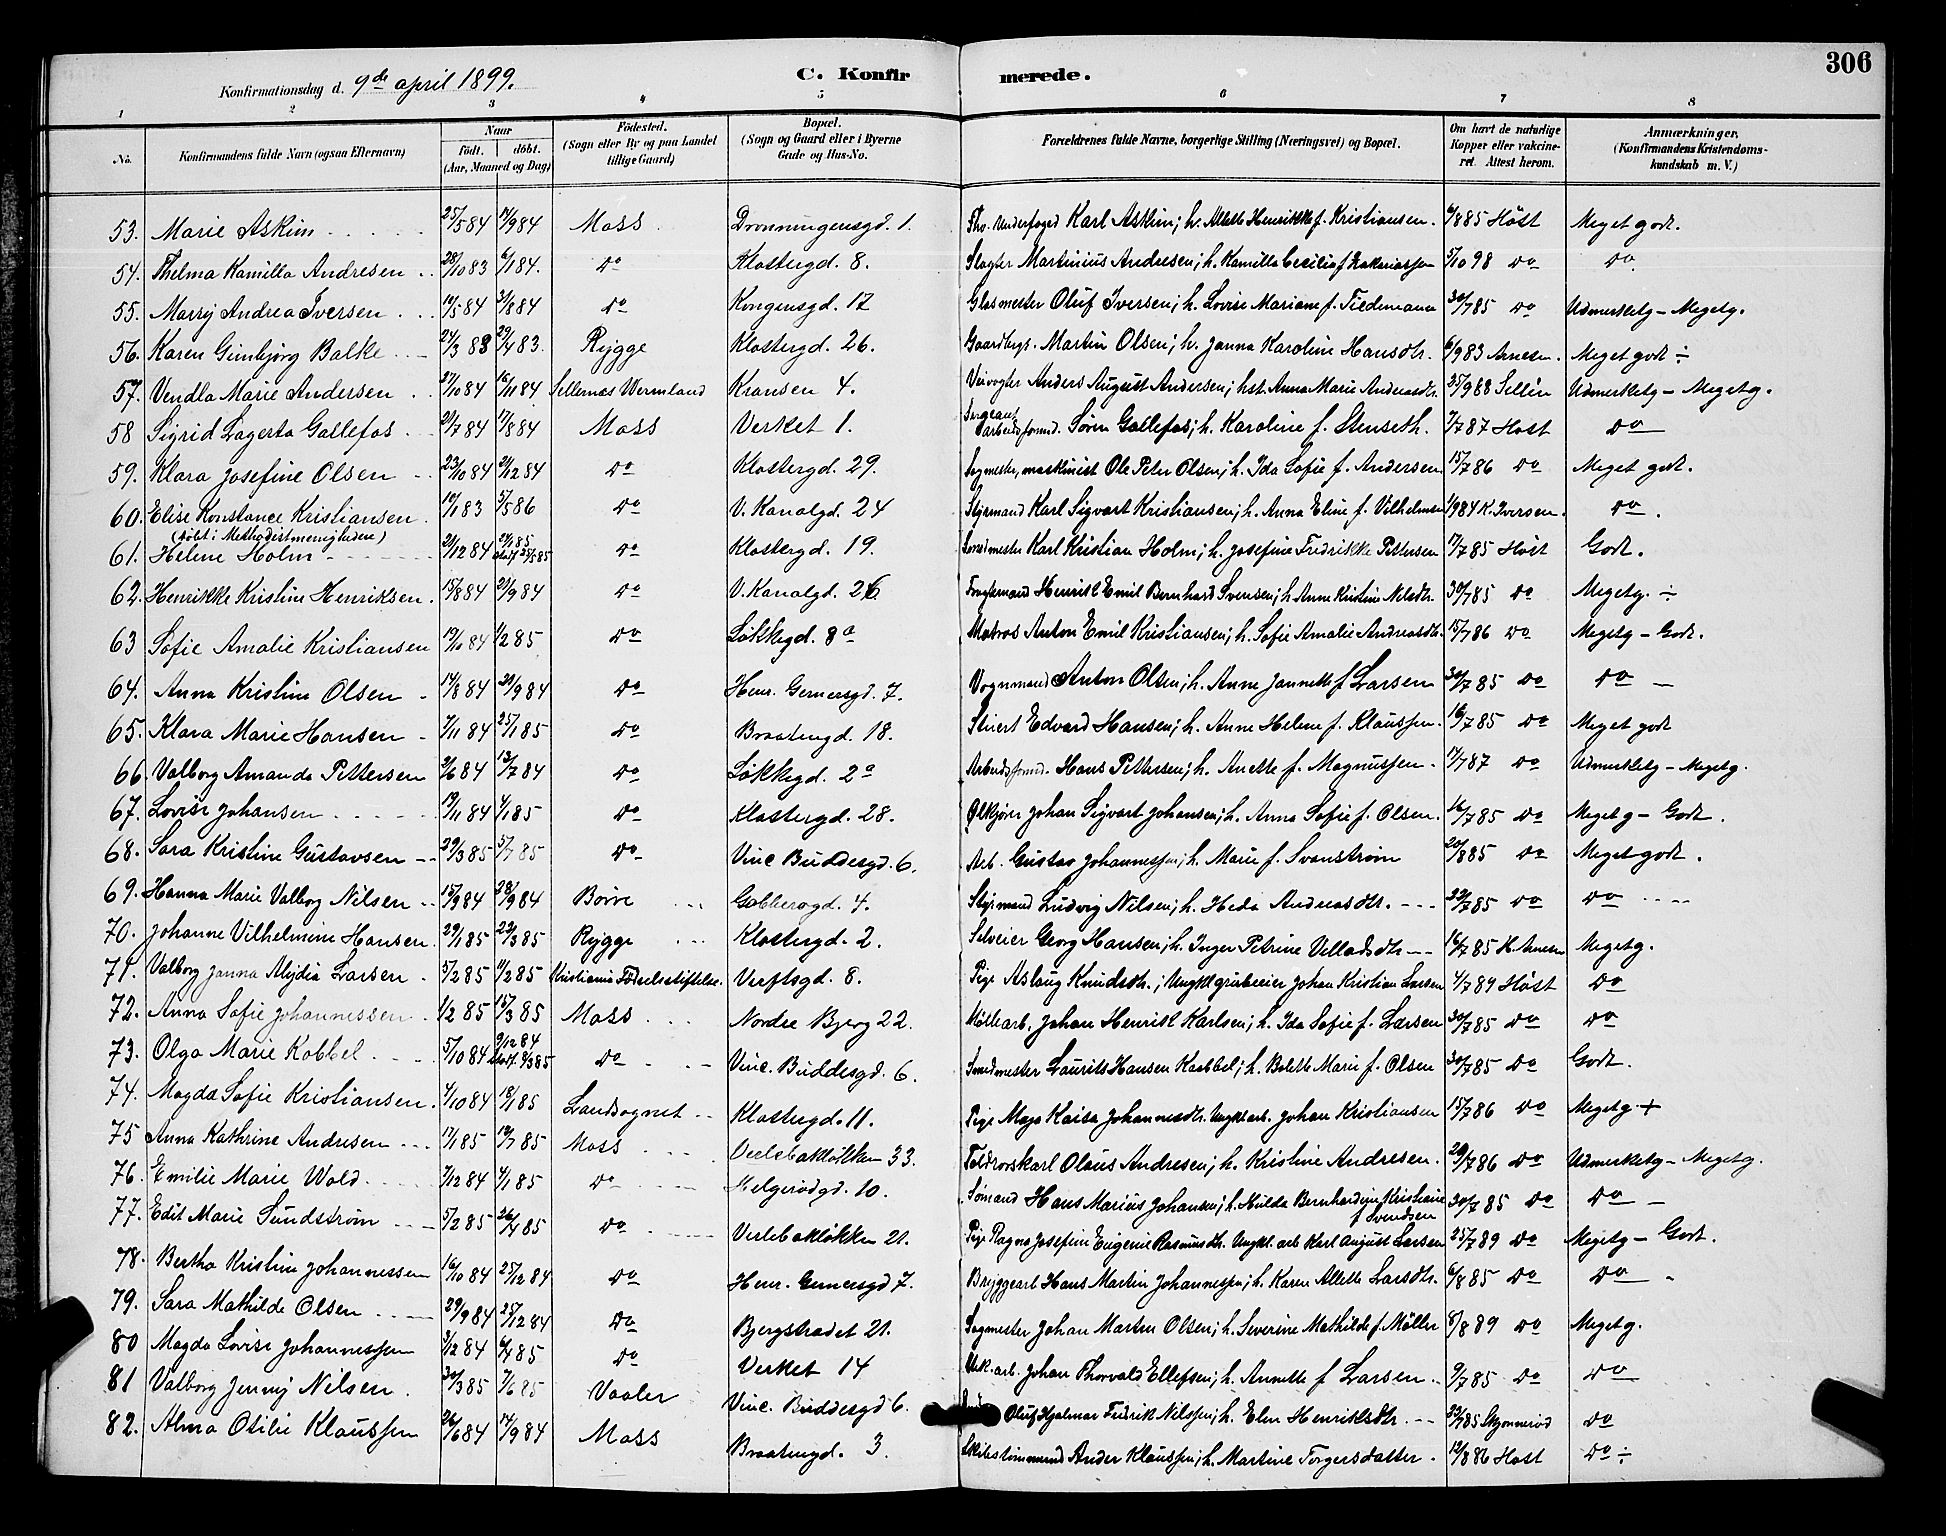 306
Konfirmationsdag d. 9de april 1899. C. Konfirmerede.
1 2 3 4 5 6 7 8
No. Konfirmandens fulde Navn (ogsaa Efternavn) Naar født. døbt. (Aar, Maaned og Dag) Fødested. (Sogn eller By og paa Landet tillige Gaard) Bopæl. (Sogn og Gaard eller i Byerne Gade og Hus-No. Forældrenes fulde Navne, borgerlige Stilling (Næringsvei) og Bopæl. Om havt de naturlige Kopper eller vakcineret. Attest herom. Anmærkninger. (Konfirmandens Kristendomskundskab m. V.)
53. Marie Askim 25/5 84 14/9 84 Moss Dronningensgd. 1. Underfoged Karl Askim; h. Allette Henrikke f. Kristiansen. 6/8 85 Høst Meget godt.
54. Thelma Kamilla Andresen 28/10 83 6/1 84. Do Klostergd. 8. Slagter Martinius Andresen; h. Kamilla Cecilia f. Zakariassen 5/10 98 Do Do
55. Marry Andrea Iversen 10/5 84 3/8 84 Do Kongensgd. 17 Glasmester Oluf Iversen; h. Lovise Mariane f. Tiedemann 30/7 85 Do Udmerketg – Megetg.
56. Karen Gunbjørg Balke 24/3 83 29/4 83. Rygge Klostergd. 26. Gaardbrgs. Martin Olsen; h. Janna Karoline Hansdtr. 6/9 83 Arnesen. Meget godt ÷
57. Vendla Marie Andersen 27/10 84 16/11 84 Sellernæs Wermland Kransen 4. Veivogter Anders August Andersen; hst. Anna Marie Andreasdtr. 25/9 88 Sellén Udmerketg – Megetg.
58 Sigrid Lagerta Gallefos 21/7 84 17/8 84 Moss Verket 1. Sergeant arbeidsformd. Søren Gallefos; h. Karoline f. Stenseth. 7/7 87 Høst Do
59. Klara Josefine Olsen 23/10 84 21/12 84 Do Klostergd. 29. Sagmester, maskinist Ole Peter Olsen; h. Ida Sofie f. Andersen 15/7 86 Do Meget godt.
60. Elise Konstance Kristiansen (døbt i Methodistmenigheden) 10/1 83 5/5 86 Do V. Kanalgd. 24 Styrmand Karl Sigvart Kristiansen; h. Anna Eline f. Vilhelmsen 1/9 84 K. Iversen. Do.
61. Helene Holm 21/12 84 Do Klostergd. 19. Smedmester Karl Kristian Holm; h. Josefine Fredrikke Pettersen 17/7 85 Høst Godt.
62. Henrikke Kristine Henriksen. 15/8 84 21/9 84 Do V. Kanalgd. 26 Henrik Emil Bernhard Svensen; h. Anne Kristine Nilsdtr. 30/7 85 Do Megetg. ÷
63 Sofie Amalie Kristiansen 19/10 84 1/2 85 Do Løkkegd. 8a Matros Anton Emil Kristiansen; h. Sofie Amalie Andreasdtr. 15/7 86 Do Megetg – Godt.
64. Anna Kristine Olsen 14/8 84 Do Henr. Gernersgd. 7. Vognmand Anton Olsen; h. Anne Jannette f. Larsen 30/7 85 Do Do –
65. Klara Marie Hansen 7/11 84 25/1 85 Do Braatengd. 18. Stuert Edvard Hansen; h. Anne Helene f. Klaussen. 16/7 85 Do Meget godt
66. Valborg Amanda Pettersen 2/6 84 13/7 84 Do Løkkegd. 2a Arbeidsformd. Hans Pettersen; h. Anette f. Magnussen 17/7 87 Do Udmerketg – Megetg.
67. Lovise Johansen 19/11 84 4/1 85 Do Klostergd. 28. Ølkjører Johan Sigvart Johansen; h. Anna Sofie f. Olsen. 16/7 85 Do Megetg – Godt.
68. Sara Kristine Gustavsen 29/3 85 5/7 85 Do Vinc. Buddesgd. 6. Arb. Gustav Johannessen; h. Marie f. Svenstrøm 20/8 85 Do Meget godt.
69. Hanna Marie Valborg Nilsen 15/9 84 28/9 84 Borre Gobberogd. 4. Styrmand Ludvig Nilsen; h. Heda Andreasdtr. 22/7 85 Do Do
70. Johanne Vilhelmine Hansen. 29/1 85 22/3 85 Rygge Klostergd. 2. Selveier Georg Hansen; h. Inger Petrine Villadsdtr 16/7 85 H. Arnesen Megetg.
71. Valborg Janna Alydia Larsen 5/2 85 11/2 85 Kristiania Fødselsstiftelse. Verftsgd. 8. Pige Aslaug Knudsdtr.; Ungkl grubeeier Johan Kristian Larsen 4/7 89 Høst Do
72. Anna Sofie Johannessen 1/2 85 15/3 85 Moss Nordre Bjerg 22. Møllearb. Johan Henrik Karlsen; h. Ida Sofie f. Larsen 30/7 85 Do Do
73. Olga Marie Kobbel 5/10 84 9/12 84 Do Vinc. Buddesgd. 6. Smedmester Laurits Hansen Kaabbel; h. Bolette Marie f. Olsen 30/7 85 Do Godt.
74. Magda Sofie Kristiansen. 4/10 84 18/1 85 Landsognet Klostergd. 11. Pige Maja Kaisa Johannesdtr. Ungkl arb. Johan Kristiansen 15/7 86 Do Megetg. +
75 Anna Kathrine Andresen 17/1 85 19/7 85 Moss Verlebakløkken 33. Toldrorskarl Olaus Andresen; h. Kristine Andresen. 29/7 86 Do Udmerketg – Megetg.
76. Emilie Marie Wold 7/12 84 4/1 85 Do Helgerødgd. 10. Sømand Hans Marius Johansen; h. Hulda Bernhardine Kristiane f. Svendsen 30/7 85 Do Do –
77. Edit Marie Sundstrøm 5/2 85 26/4 85 Do Verlebakløkken 21. Pige Ragna Josefine Eugenie Rasmusdtr. Ungkl. arb Karl August Larsen 25/7 89 Do Megetg – Godt.
78. Bertha Kristine Johannessen 16/10 84 25/12 84 Do Henr. Gernersgd 7. Bryggearb Hans Martin Johannessen; h. Karen Allette Larsdtr. 6/8 85 Do Do
79. Sara Mathilde Olsen 29/9 84 25/12 84 Do Bjergstradet 21. Sagmester Johan Martin Olsen; h. Severine Mathilde f. Møller 8/8 89 Do Megetg.
80 Magda Lovise Johannessen 3/12 84 6/4 85 Do Verket 14 Verk. arb. Johan Thorvald Ellefsen; h. Annette f Larsen 9/7 85 Do Do
81 Valborg Jenny Nilsen. 30/3 85 7/6 85 Vaaler Vinc. Buddesgd 6. Oluf Hjalmar Fredrik Nilssen; h. Elen Henriksdtr. 23/7 85 Do
82. Alma Otilie Klaussen 26/6 84 14/9 84 Moss Braatengd. 3. Skibstømmermd Ander Klaussen; h. Martine Torgersdatter. 12/8 86 Høst Do ÷